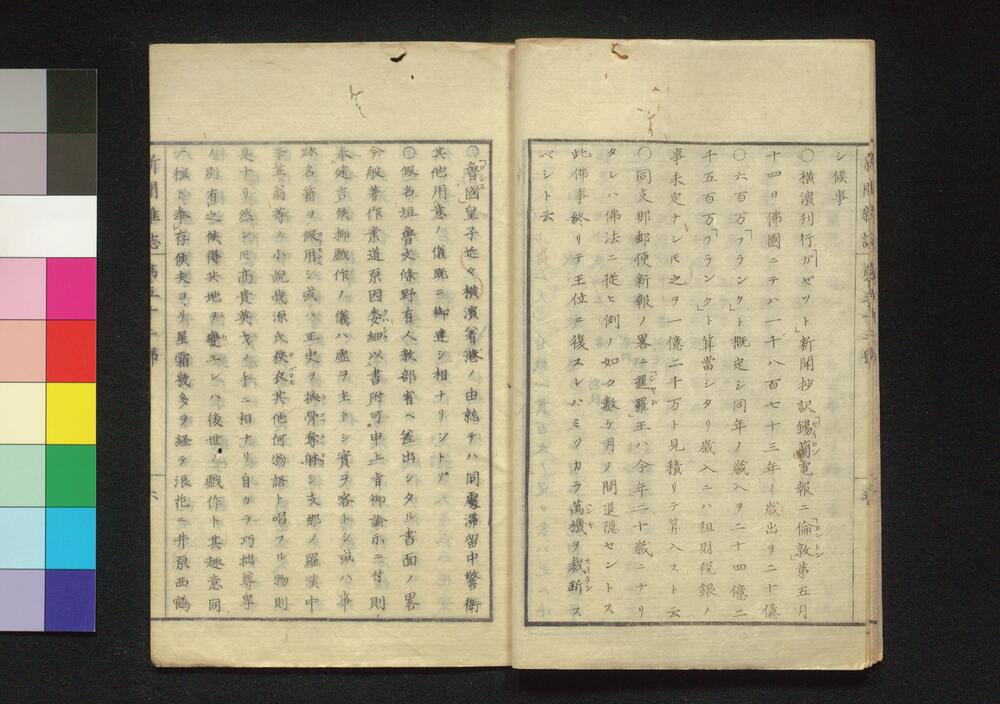 シ候事
〇横濱刊行「ガゼット」新聞抄訳錫蘭電報ニ倫敦第五月
十四日佛國ニテハ一千八百七十三年ノ歳出ヲ二十億
〇六百万「フランク」ト概定シ同年ノ歳入ヲ二十四億二
千五百万「フランク」ト算當シタリ歳入ニハ租財税銀ノ
事未定ナレ𪜈之ヲ一億二千万ト見積リテ算入スト云
〇同支那郵便新報ノ畧ニ暹羅王ハ今年二十歳ニナリ
タレハ佛法ニ従ヒ例ノ如ク數ケ月ノ間退隠セントス
此佛事終リテ王位ニ復スレハミツカラ萬機ヲ裁断ス
ベシト云
〇魯國皇子近々横濱着港ノ由就テハ同處滞留中警衛
其他用意ノ儀既ニ御達シ相ナリシトゾ
〇假名垣魯文條野有人教部省ヘ差出シタル書面ノ畧
今般著作業道原因委細以書附可申上旨御諭示ニ付則
奉建言候抑戯作ノ儀ハ虚ヲ主トシ實ヲ客トシ或ハ事
跡名籍ヲ假用シ或ハ正史ヲ換骨奪胎シ支那ノ羅漢中
李笠翁等ノ小説我源氏狹衣其他何物語ト唱フル物則
是ナリ然レ𪜈高貴英才ノ手ニ相ナリ自カラ巧拙尊卑
ノ別有之候得共地ヲ變エレハ後世ノ戯作ト其趣意同
一極ト奉存候夫ヨリ星霜幾多ヲ経テ浪花ニ井原西鶴
新聞雑誌 第五十二號
六